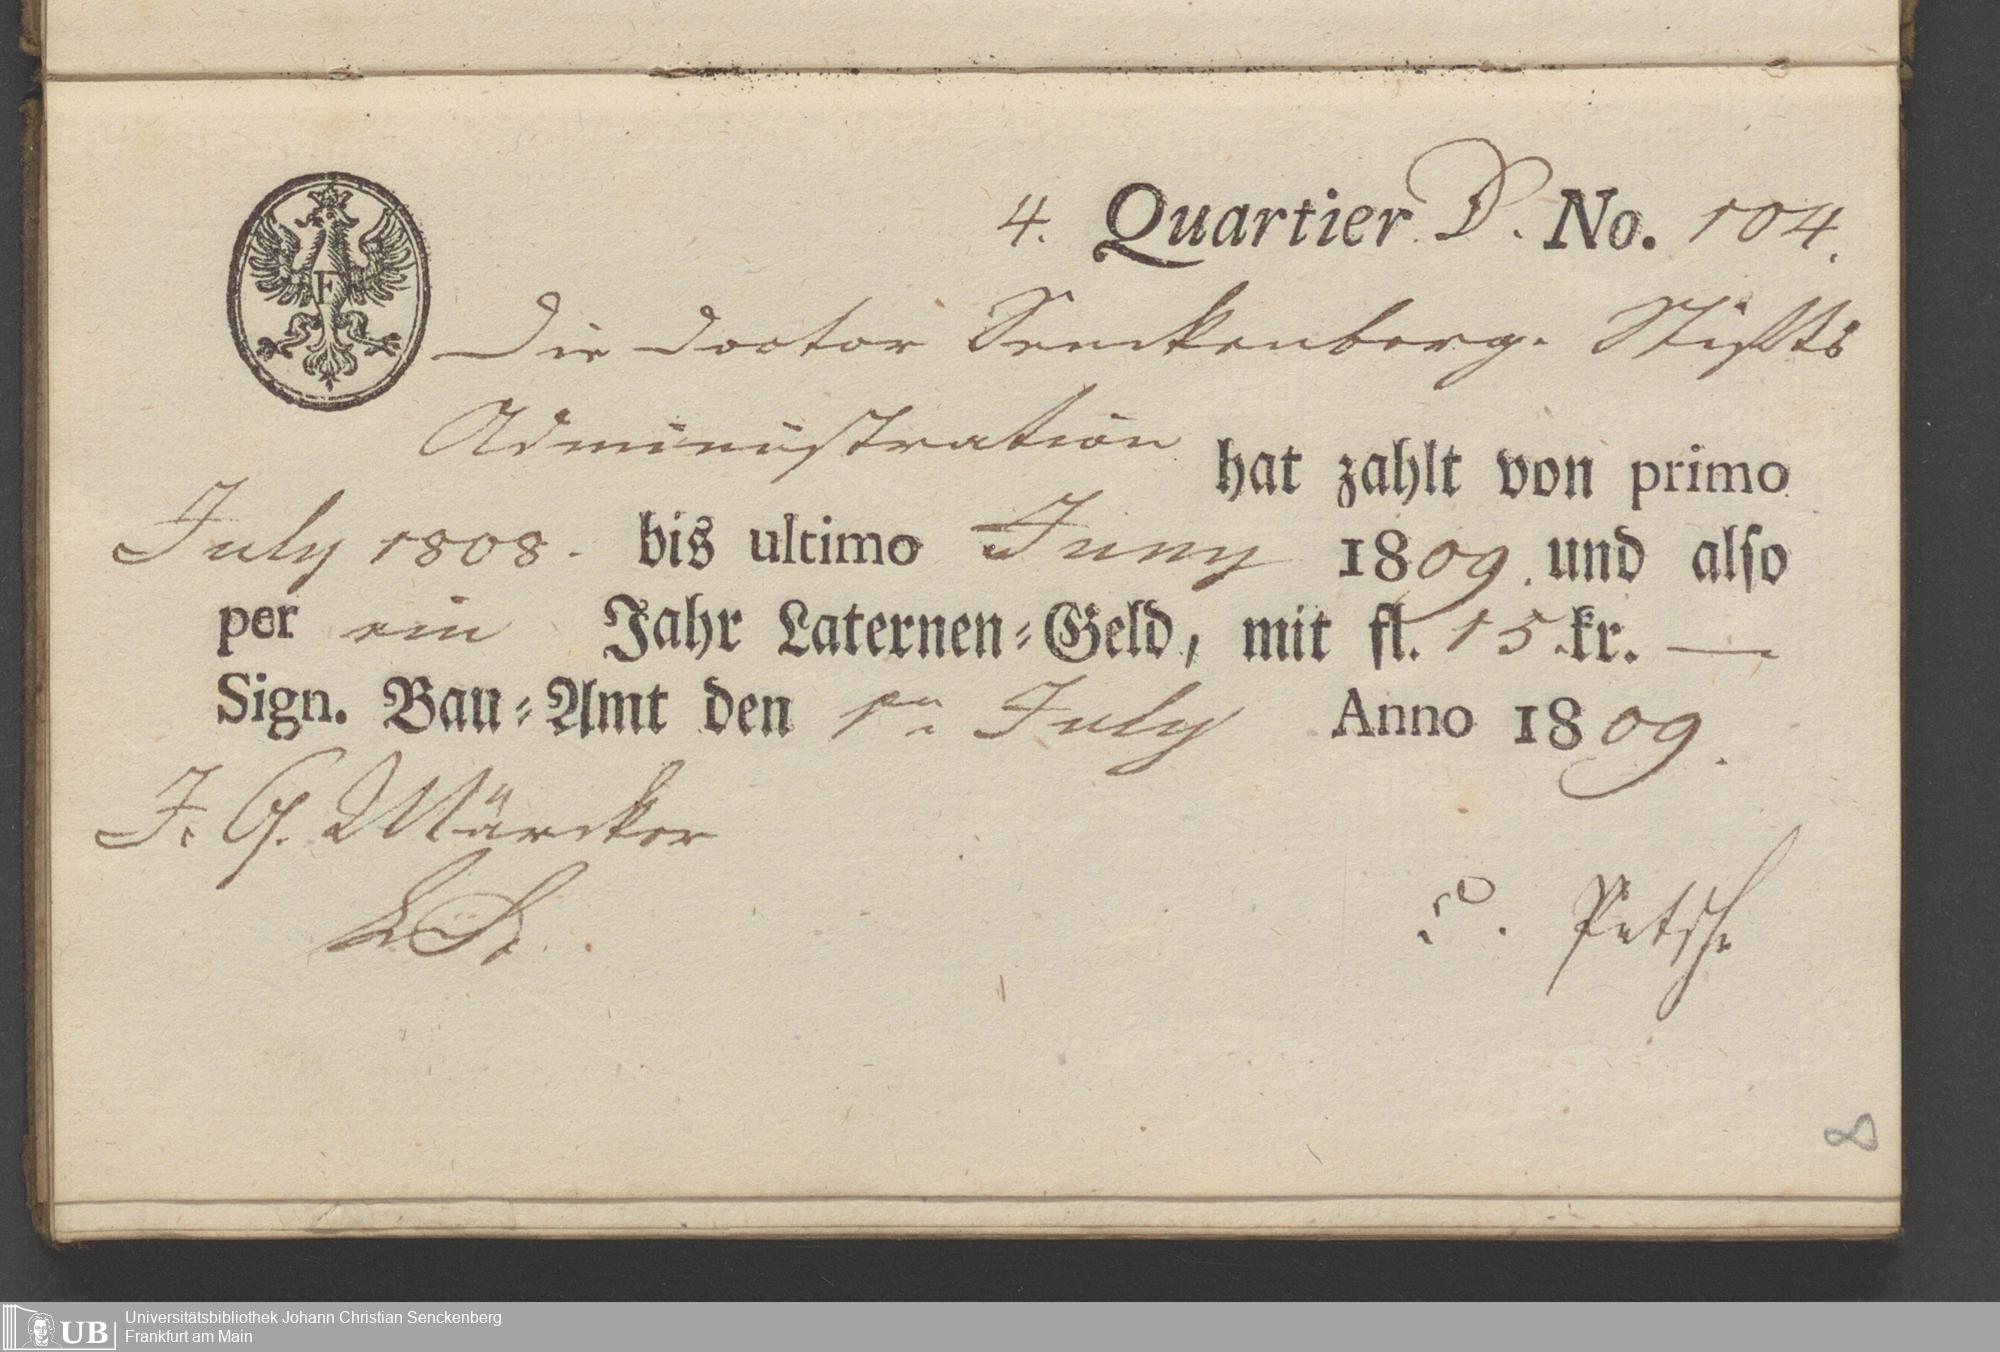 F
4. Quartier D. No. 104.
Die Doctor Senckenberg. Stiffts
Administration hat zahlt von primo
July 1808. bis ultimo Juny 1809. und also
per ein Jahr Laternen-Geld, mit fl. 15 kr. —
Sign. Bau-Amt den 1en July Anno 1809.
J. G. Märcker
Petsch
8
UB
Universitätsbibliothek Johann Christian Senckenberg
Frankfurt am Main